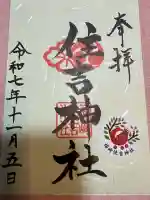 奉拝
住吉神社
令和七年十一月五日